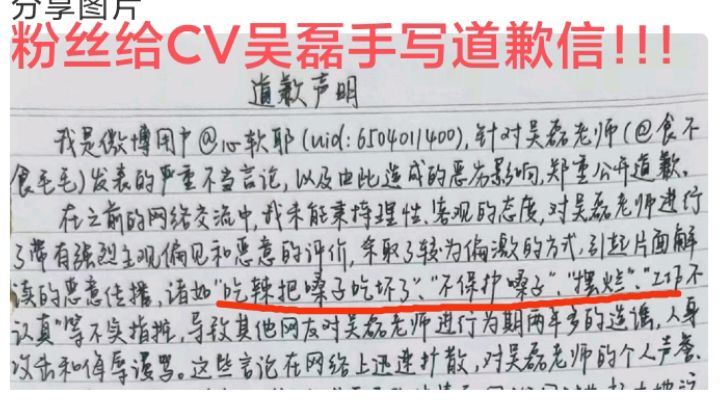 分享图片
粉丝给CV吴磊手写道歉信!!!
道歉声明
我是微博用户@心软耶(uid:6504011400),针对吴磊老师(@食不
食毛毛)发表的严重不当言论,以及由此造成的恶劣影响,郑重公开道歉。
在之前的网络交流中,我未能秉持理性、客观的态度,对吴磊老师进行
了带有强烈主观偏见和恶意的评价,采取了较为偏激的方式,引起片面解
读的恶意传播,诸如"吃辣把嗓子吃坏了"、"不保护嗓子"、"摆烂"、"工作不
认真"等不实指控,导致其他网友对吴磊老师进行为期两年多的造谣,人身
攻击和侮辱谩骂。这些言论在网络上迅速扩散,对吴磊老师的个人声誉、